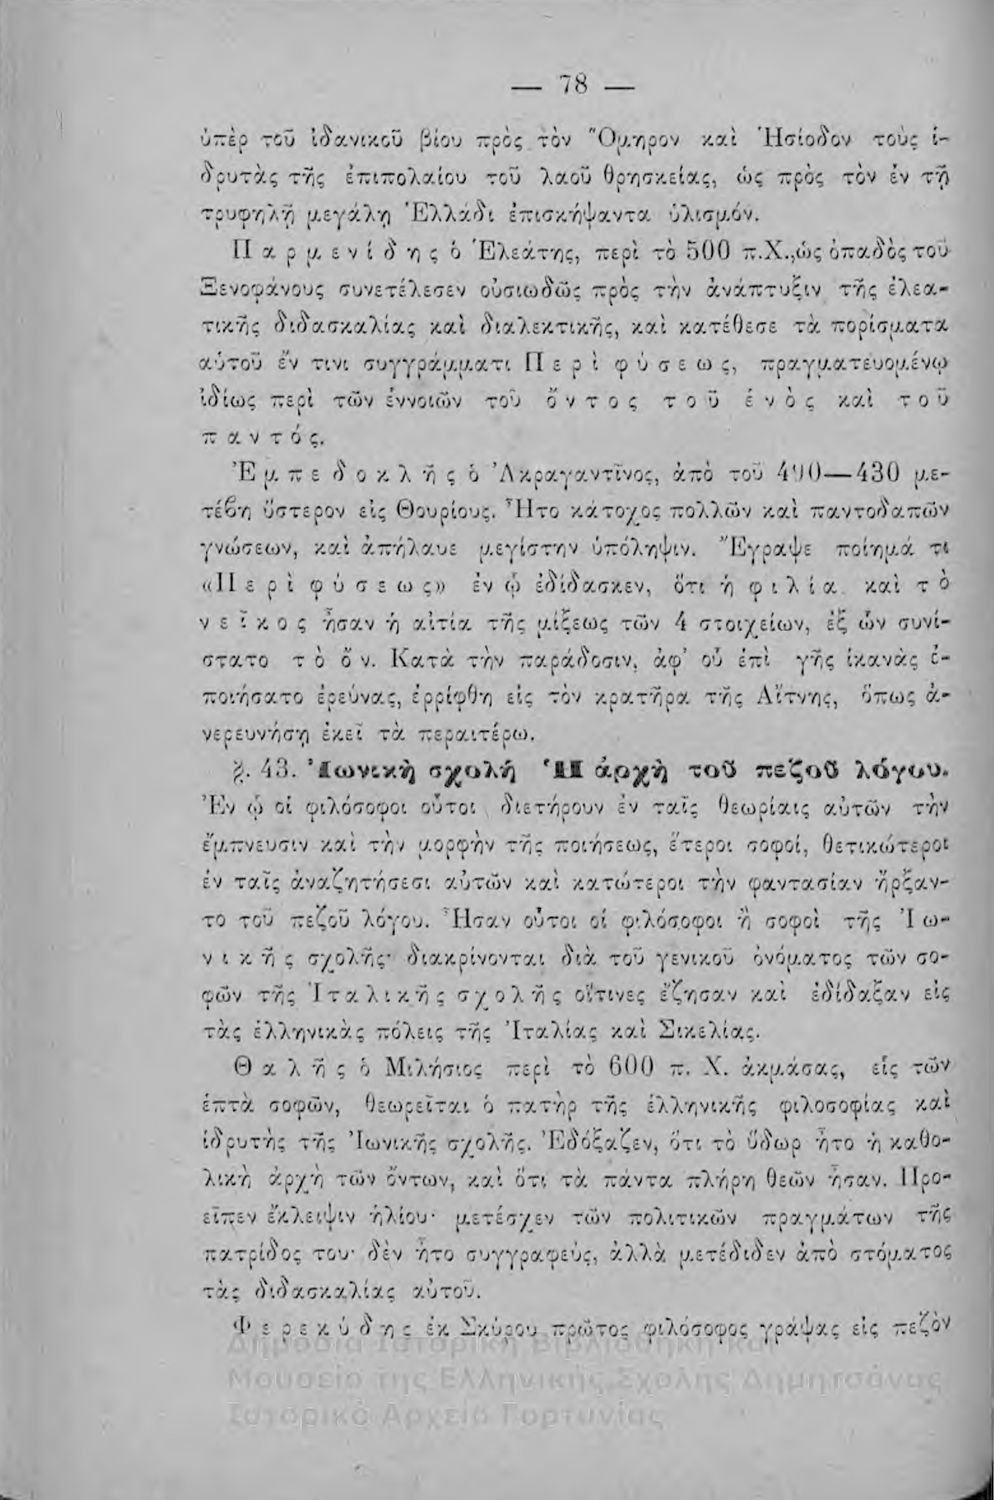 — 78 —
ὑπὲρ τοῦ ἰδανικοῦ βίου πρὸς τὸν Ὅμηρον καὶ Ἡσίοδον τοὺς ἱ-
δρυτὰς τῆς ἐπιπολαίου τοῦ λαοῦ θρησκείας, ὡς πρὸς τὸν ἐν τῇ
τρυφηλῇ μεγάλῃ Ἑλλάδι ἐπισκήψαντα ὑλισμόν.
Π α ρ μ ε ν ί δ η ς ὁ Ἐλεάτης, περὶ τὸ 500 π.Χ.,ὡς ὀπαδὸς τοῦ
Ξενοφάνους συνετέλεσεν οὐσιωδῶς πρὸς τὴν ἀνάπτυξιν τῆς ἐλεα-
τικῆς διδασκαλίας καὶ διαλεκτικῆς, καὶ κατέθεσε τὰ πορίσματα
αὑτοῦ ἔν τινι συγγράμματι Π ε ρ ὶ φ ύ σ ε ω ς, πραγματευομένῳ
ἰδίως περὶ τῶν ἐννοιῶν τοῦ ὄ ν τ ο ς τ ο ῦ ἑ ν ὸ ς καὶ τ ο ῦ
π α ν τ ό ς.
Ἐ μ π ε δ ο κ λ ῆ ς ὁ Ἀκραγαντῖνος, ἀπὸ τοῦ 490—430 με-
τέβη ὕστερον εἰς Θουρίους. Ἦτο κάτοχος πολλῶν καὶ παντοδαπῶν
γνώσεων, καὶ ἀπήλαυε μεγίστην ὑπόληψιν. Ἔγραψε ποίημά τι
«Π ε ρ ὶ φ ύ σ ε ω ς» ἐν ᾧ ἐδίδασκεν, ὅτι ἡ φ ι λ ί α καὶ τ ὸ
ν ε ῖ κ ο ς ἦσαν ἡ αἰτία τῆς μίξεως τῶν 4 στοιχείων, ἐξ ὧν συνί-
στατο τ ὸ ὄ ν. Κατὰ τὴν παράδοσιν, ἀφ' οὗ ἐπὶ γῆς ἱκανὰς ἐ-
ποιήσατο ἐρεύνας, ἐρρίφθη εἰς τὸν κρατῆρα τῆς Αἴτνης, ὅπως ἀ-
νερευνήσῃ ἐκεῖ τὰ περαιτέρω.
§. 43. Ἰωνικὴ σχολή Ἡ ἀρχὴ τοῦ πεζοῦ λόγου.
Ἐν ᾧ οἱ φιλόσοφοι οὗτοι διετήρουν ἐν ταῖς θεωρίαις αὑτῶν τὴν
ἔμπνευσιν καὶ τὴν μορφὴν τῆς ποιήσεως, ἕτεροι σοφοί, θετικώτεροι
ἐν ταῖς ἀναζητήσεσι αὑτῶν καὶ κατώτεροι τὴν φαντασίαν ἤρξαν-
το τοῦ πεζοῦ λόγου. Ἦσαν οὗτοι οἱ φιλόσοφοι ἢ σοφοὶ τῆς Ἰ ω-
ν ι κ ῆ ς σχολῆς· διακρίνονται διὰ τοῦ γενικοῦ ὀνόματος τῶν σο-
φῶν τῆς Ἰ τ α λ ι κ ῆ ς σ χ ο λ ῆ ς οἵτινες ἔζησαν καὶ ἐδίδαξαν εἰς
τὰς ἑλληνικὰς πόλεις τῆς Ἰταλίας καὶ Σικελίας.
Θ α λ ῆ ς ὁ Μιλήσιος περὶ τὸ 600 π. Χ. ἀκμάσας, εἷς τῶν
ἑπτὰ σοφῶν, θεωρεῖται ὁ πατὴρ τῆς ἑλληνικῆς φιλοσοφίας καὶ
ἱδρυτὴς τῆς Ἰωνικῆς σχολῆς. Ἐδόξαζεν, ὅτι τὸ ὕδωρ ἦτο ἡ καθο-
λικὴ ἀρχὴ τῶν ὄντων, καὶ ὅτι τὰ πάντα πλήρη θεῶν ἦσαν. Προ-
εῖπεν ἔκλειψιν ἡλίου· μετέσχεν τῶν πολιτικῶν πραγμάτων τῆς
πατρίδος του· δὲν ἦτο συγγραφεύς, ἀλλὰ μετέδιδεν ἀπὸ στόματος
τὰς διδασκαλίας αὑτοῦ.
Φ ε ρ ε κ ύ δ η ς ἐκ Σκύρου πρῶτος φιλόσοφος γράψας εἰς πεζὸν
Δημόσια Ιστορική Βιβλιοθήκη και
Μουσείο της Ελληνικής Σχολής Δημητσάνας
Ιστορικό Αρχείο Γορτυνίας